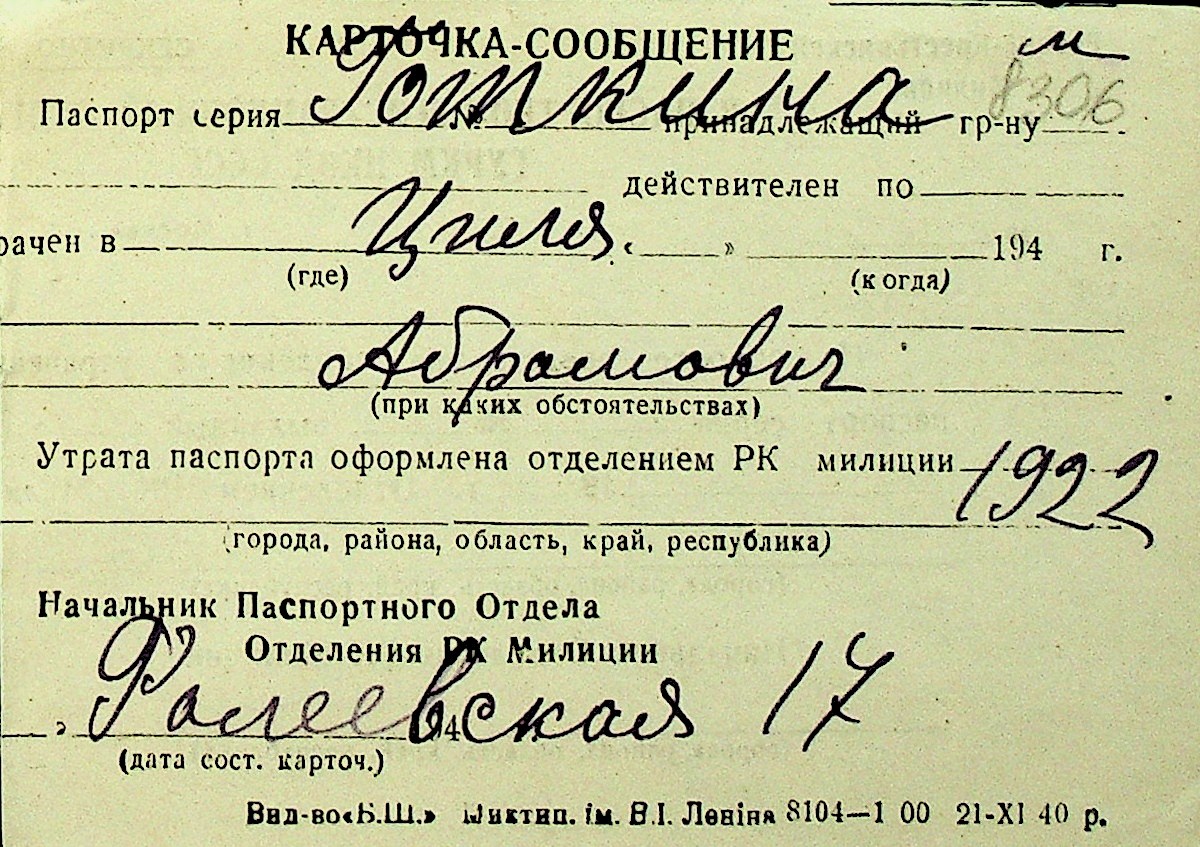 КАРТОЧКА-СООБЩЕНИЕ м
8306
Паспорт серия № принадлежащий гр-ну
Готкина
действителен по
рачен в Циля « » 194 г.
(где) (когда)
Абрамович
(при каких обстоятельствах)
Утрата паспорта оформлена отделением РК милиции 1922
(города, района, область, край, республика)
Начальник Паспортного Отдела
Отделения РК Милиции
Фалеевская 17
» 194
(дата сост. карточ.)
Вид-во «Б.Ш.» Миктип. ім. В.І. Леніна 8104—1 00 21-XI 40 р.